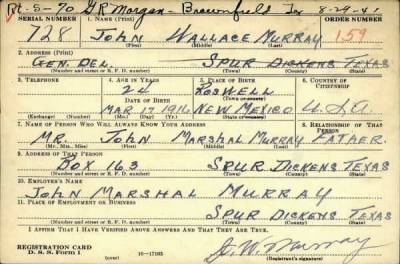 Rt-5-70 G R Morgan - Brownfield Tex 8-29-41
SERIAL NUMBER 1. NAME (Print) ORDER NUMBER
728 JOHN WALLACE MURRAY 159
(First) (Middle) (Last)
2. ADDRESS (Print)
GEN. DEL. SPUR DICKENS TEXAS
(Number and street or R. F. D. number) (Town) (County) (State)
3. TELEPHONE 4. AGE IN YEARS 5. PLACE OF BIRTH 6. COUNTRY OF CITIZENSHIP
24 ROSWELL
DATE OF BIRTH (Town or county)
MAR 17 1916 NEW MEXICO U.S.A.
(Exchange) (Number) (Mo.) (Day) (Yr.) (State or country)
7. NAME OF PERSON WHO WILL ALWAYS KNOW YOUR ADDRESS 8. RELATIONSHIP OF THAT PERSON
MR. JOHN MARSHAL MURRAY FATHER.
(Mr., Mrs., Miss) (First) (Middle) (Last)
9. ADDRESS OF THAT PERSON
BOX 163 SPUR DICKENS TEXAS
(Number and street or R. F. D. number) (Town) (County) (State)
10. EMPLOYER'S NAME
JOHN MARSHAL MURRAY
11. PLACE OF EMPLOYMENT OR BUSINESS
SPUR DICKENS TEXAS
(Number and street or R. F. D. number) (Town) (County) (State)
I AFFIRM THAT I HAVE VERIFIED ABOVE ANSWERS AND THAT THEY ARE TRUE.
REGISTRATION CARD
D. S. S. Form 1 16-17105 J. W. Murray
(Registrant's signature)